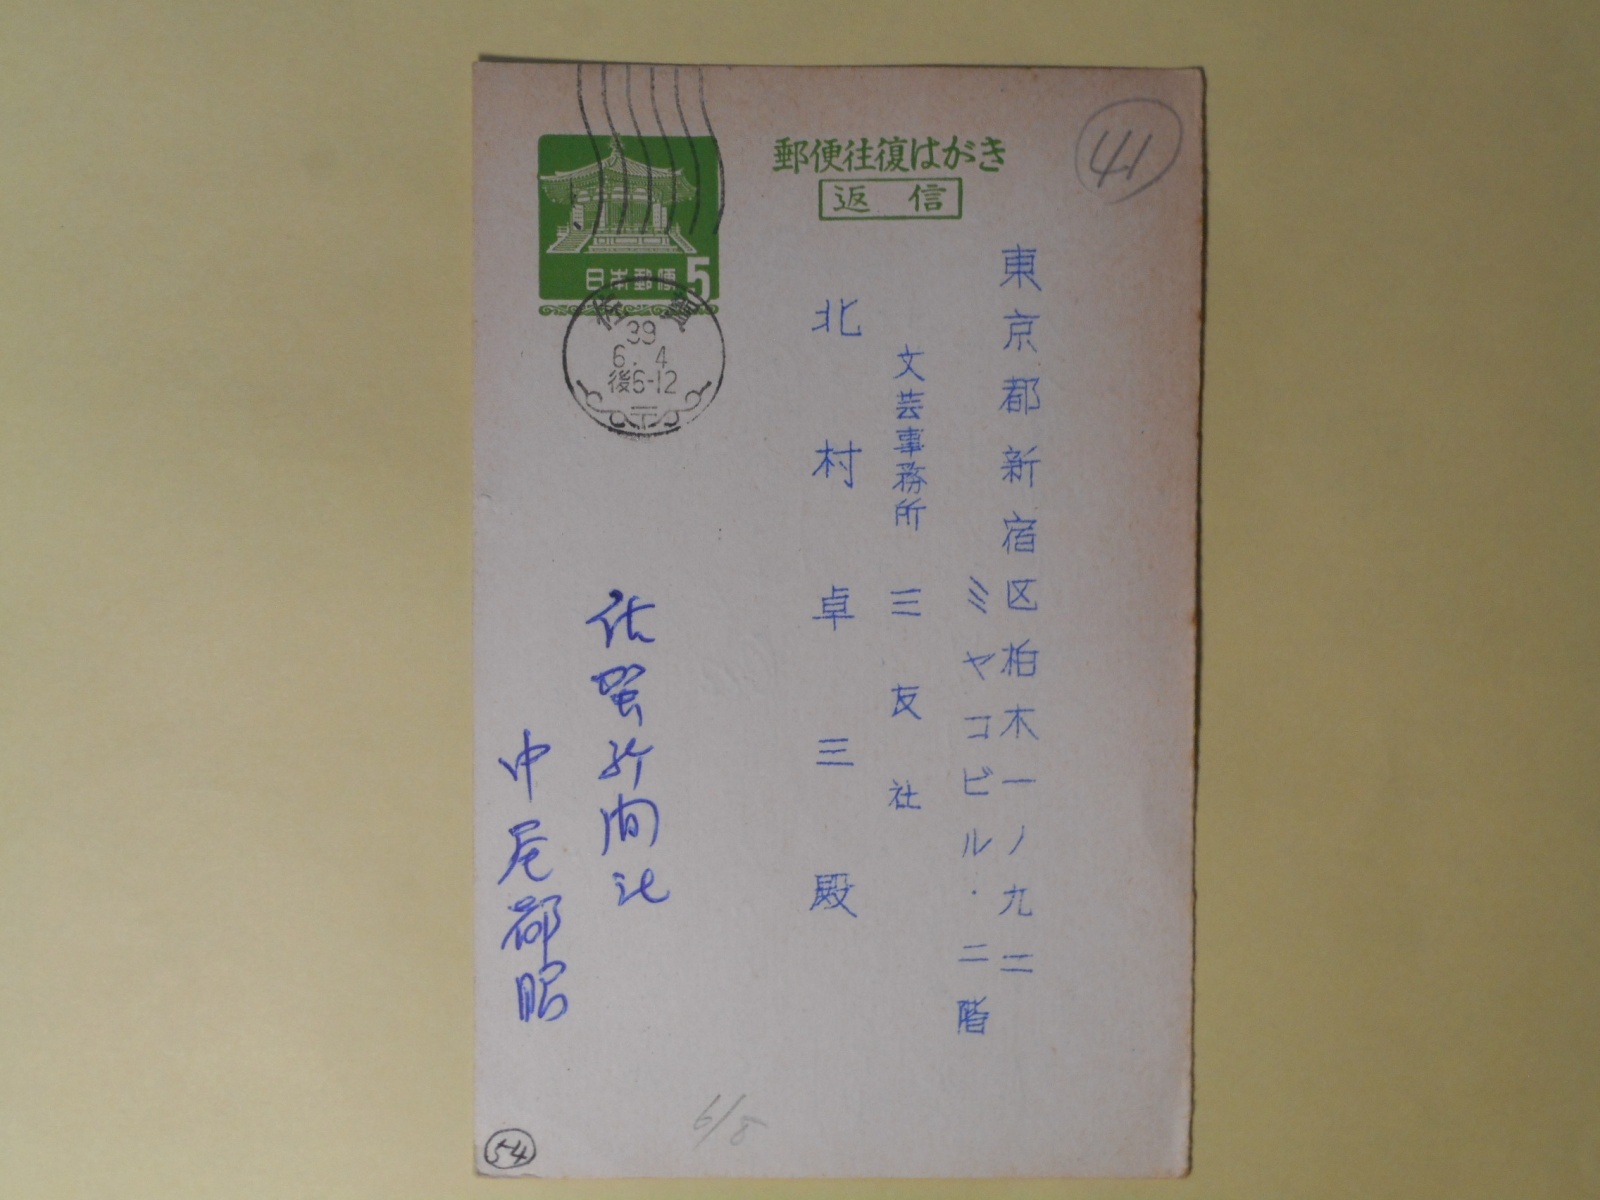 郵便往復はがき
返信
41
日本郵便 5
佐賀
39
6.4
後6-12
〒
東京都新宿区柏木一ノ九二
ミヤコビル・二階
文芸事務所 三友社
北村卓三殿
佐賀新聞社
中尾都昭
6/8
54